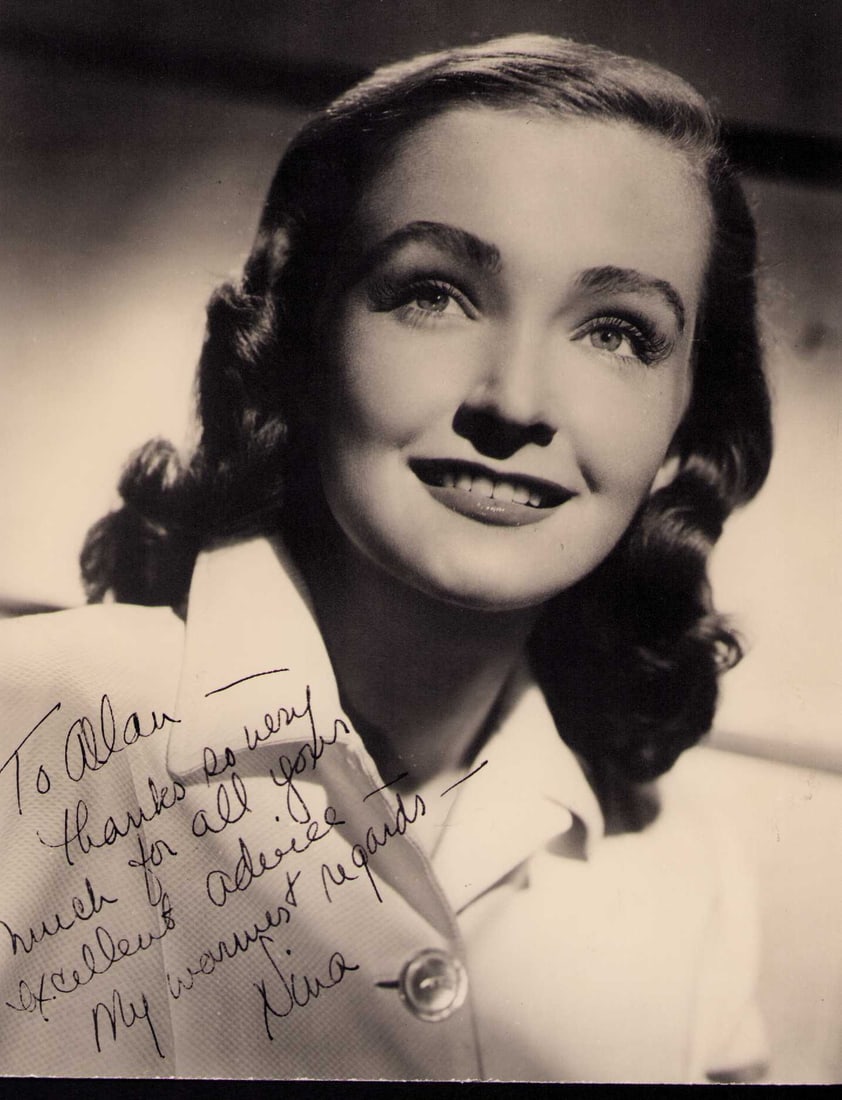 To Alan —
thanks so very
much for all your
excellent advice —
My warmest regards —
Nina